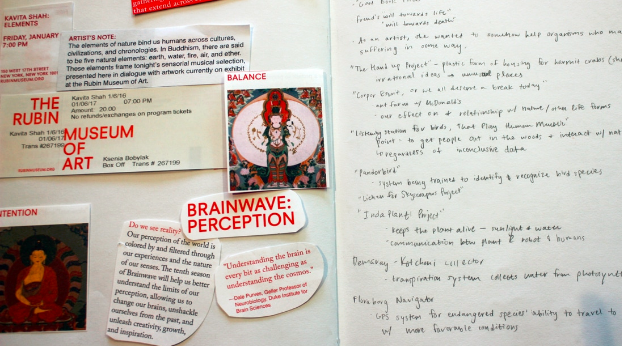 gathering
that extend across
KAVITA SHAH:
ELEMENTS
FRIDAY, JANUARY
7:00 PM
150 WEST 17TH STREET
NEW YORK, NEW YORK
RUBINMUSEUM.ORG
ARTIST'S NOTE:
The elements of nature bind us humans across cultures,
civilizations, and chronologies. In Buddhism, there are said
to be five natural elements: earth, water, fire, air, and ether.
These elements frame tonight's sensorial musical selection,
presented here in dialogue with artwork currently on exhibit
at the Rubin Museum of Art.
THE
RUBIN
MUSEUM
OF
ART
Kavita Shah 1/6/16
01/06/17 07:00 PM
Amount: 20.00
No refunds/exchanges on program tickets
Kavita Shah 1/6/16
01/06/17
Trans #267199
Ksenia Bobylak
Box Off Trans # 267199
BALANCE
BRAINWAVE:
PERCEPTION
NTENTION
Do we see reality?
Our perception of the world is
colored by and filtered through
our experiences and the nature
of our senses. The tenth season
of Brainwave will help us better
understand the limits of our
perception, allowing us to
change our brains, unshackle
ourselves from the past, and
unleash creativity, growth,
and inspiration.
"Understanding the brain is
every bit as challenging as
understanding the cosmos."
—Dale Purves, Geller Professor of
Neurobiology, Duke Institute for
Brain Sciences
Freud's will towards life
"will towards death"
As an artist, she wanted to somehow help organisms who may
suffering in some way.
"The Hand Up Project" - plastic form of housing for hermit crabs
irrational ideas → places
or we all deserve a break today.
McDonalds
our effect on & relationship w/ nature/other life forms
"Listening station for birds, That Play Human Music"
point - to get people out in the woods & interact w/ nat
regardless of inconclusive data
"Pandorabird"
- system being trained to identify & recognize bird species
"Lichen for Skyscrapers Project"
"Jinda Plant Project"
- keeps the plant alive - sunlight & water
- communication btwn plant & robot & humans
- transpiration system collects water from photosynthe
Floraborg Navigator
- GPS system for endangered species' ability to travel to
w/ more favorable conditions